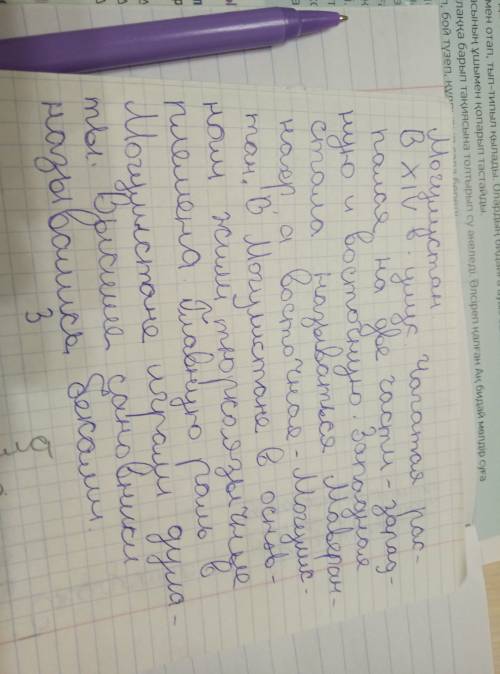 мен отап, тып-типыл қылады. Олардың
асының ұшымен қопарып тастайды
лаққа барып тақиясына толтырып су әкеледі. Әлсіреп қалған Ақ бидай мөлдір суға
п, бой түзеп,
Могулистан
В XIV в. улус Чагатая рас-
палая на две части - запад-
ную и восточную. Западная
стала называться Маверан-
нахр, а восточная - Могулис-
тан. В Могулистане в основ-
ном жили тюркоязычные
племена. Главную роль в
Могулистане играли дугла-
ты. Высшее сановники
назывались беками.
3